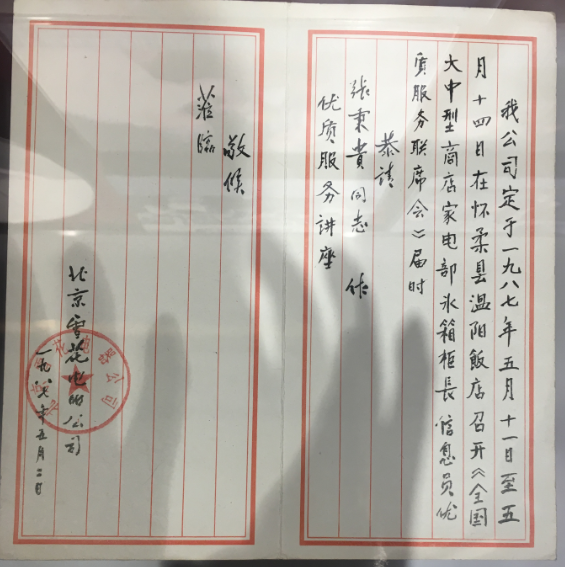 我公司定于一九八七年五月十一日至五
月十四日在怀柔县温阳飯店召开《全国
大中型商店家电部氷箱柜長信息员优
质服务联席会》届时
恭请
张秉贵同志作
优质服务讲座
敬候
莅临
北京雪花电器公司
一九八七年五月二日